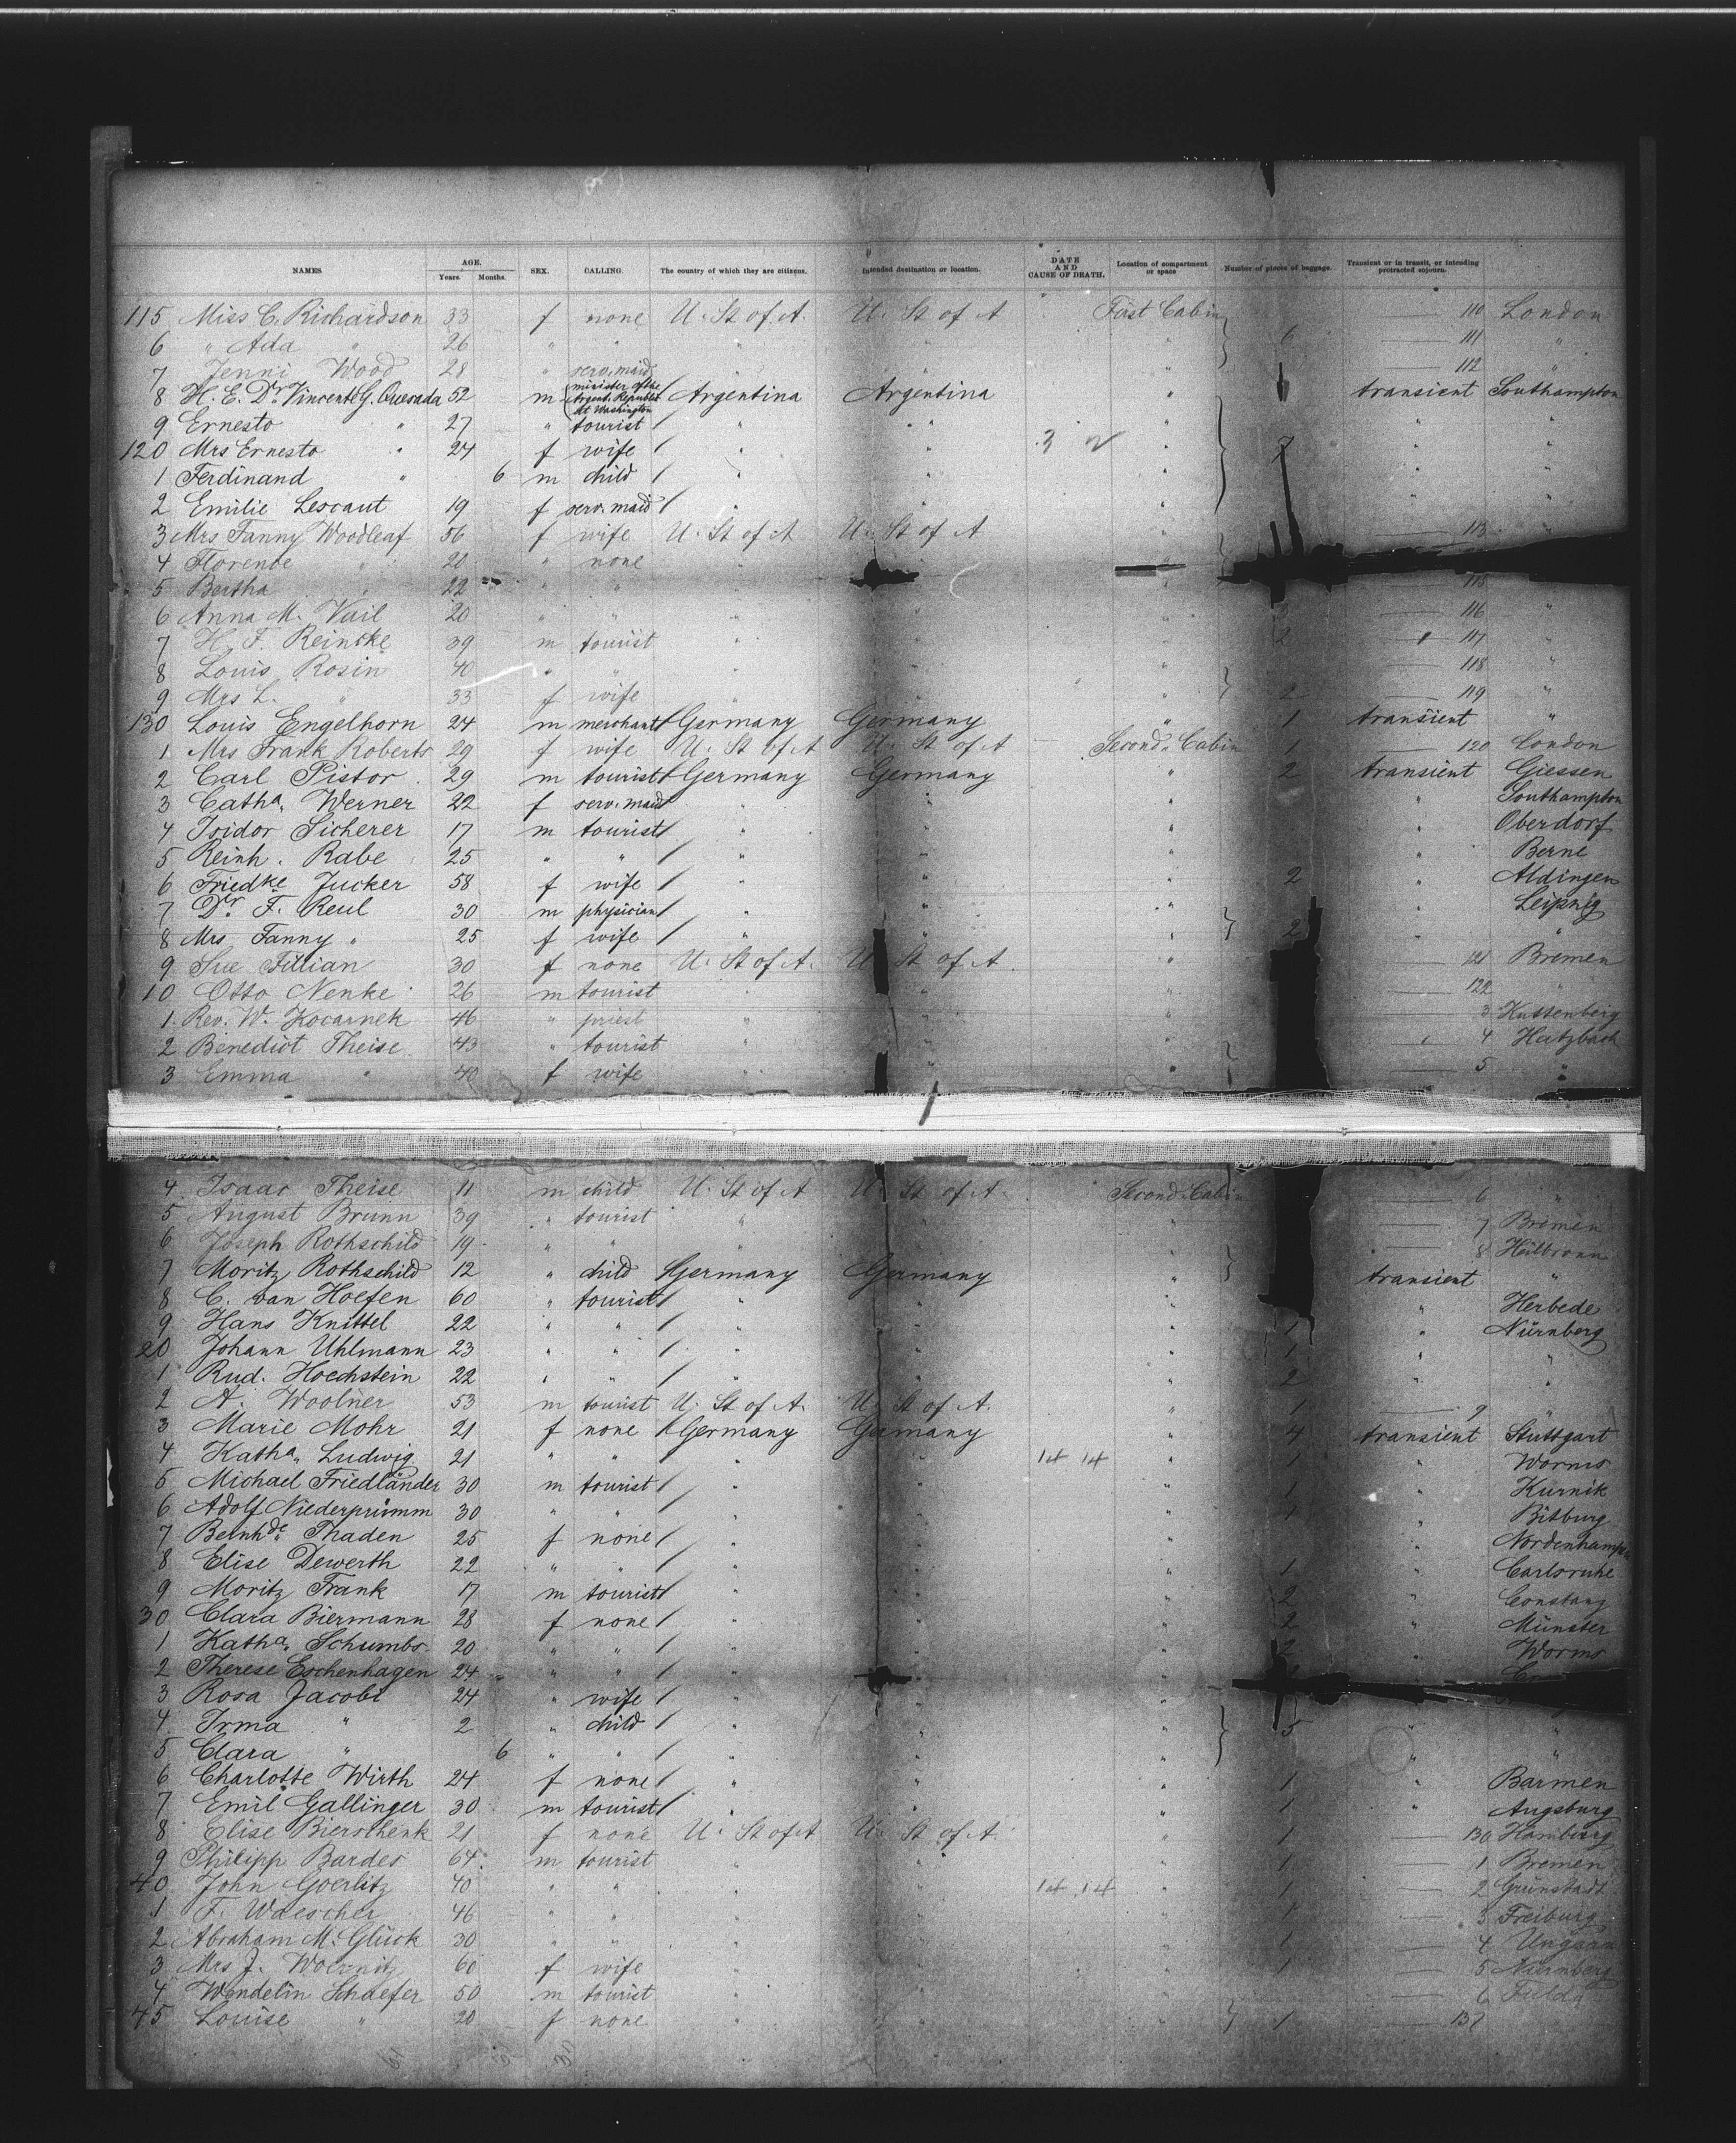 NAMES. AGE. Years. Months. SEX. CALLING. The country of which they are citizens. Intended destination or location. DATE AND CAUSE OF DEATH. Location of compartment or space Number of pieces of baggage. Transient or in transit, or intending protracted sojourn.
115 Miss C. Richardson 33 f none U. St of A. U. St of A First Cabin 110 London
6 " Ada " 26 " " " " " 6 111 "
7 Jenni Wood 28 " serv. maid " " " 112 "
8 H. E. Dr. Vincente G. Quesada 52 m minister of the Argent. Republic at Washington Argentina Argentina " transient Southampton
9 Ernesto " 27 " tourist " " " " "
120 Mrs Ernesto " 24 f wife " " 3 " 7 " "
1 Ferdinand " 6 m child " " " " "
2 Emilie Lescaut 19 f serv. maid " " " " "
3 Mrs Fanny Woodleaf 56 f wife U. St of A U. St of A " 113 "
4 Florence " 20 " none " "
5 Bertha " 22 " " " " " 115
6 Anna M. Vail 20 " " " " " 3 116 "
7 H. F. Reincke 39 m tourist " " " 2 117 "
8 Louis Rosin 40 " " " " " 118 "
9 Mrs L. " 33 f wife " " " 2 119 "
130 Louis Engelhorn 24 m merchant Germany Germany " 1 transient "
1 Mrs Frank Roberts 29 f wife U. St of A U. St of A Second Cabin 1 120 London
2 Carl Pistor 29 m tourist Germany Germany " 2 transient Giessen
3 Catha. Werner 22 f serv. maid " " " " Southampton
4 Isidor Sicherer 17 m tourist " " " " Oberdorf
5 Reinh. Rabe 25 " " " " " " Berne
6 Friedke Jucker 58 f wife " " " 2 " Aldingen
7 Dr. F. Reul 30 m physician " " " " Leipzig
8 Mrs Fanny " 25 f wife " " " 2 " "
9 Sue Fillian 30 f none U. St of A. U. St of A " 121 Bremen
10 Otto Nenke 26 m tourist " " " 122 "
1 Rev. W. Kocarnek 46 " priest " " " 3 Kuttenberg
2 Benedict Theise 43 " tourist " " " 4 Hatzbach
3 Emma " 40 f wife " " " 5 "
4 Isaac Theise 11 m child U. St of A U. St of A. Second Cabin 6 "
5 August Brunn 39 " tourist " " " 7 Bremen
6 Joseph Rothschild 19 " " " " " 8 Heilbronn
7 Moritz Rothschild 12 " child Germany Germany " transient "
8 C. van Hoefen 60 " tourist " " " " Herbede
9 Hans Knittel 22 " " " " " 1 " Nürnberg
20 Johann Uhlmann 23 " " " " " 1 " "
1 Rud. Hoechstein 22 " " " " " 2 " "
2 A. Woolner 53 m tourist U. St of A. U. St of A. " 1 9 "
3 Marie Mohr 21 f none Germany Germany " 4 transient Stuttgart
4 Katha. Ludwig 21 " " " " 14 14 " 1 " Worms
5 Michael Friedländer 30 m tourist " " " 1 " Kurnik
6 Adolf Niederprümm 30 " " " " " 1 " Bitburg
7 Bernhde. Thaden 25 f none " " " " Nordenhamm
8 Elise Dewerth 22 " " " " " 1 " Carlsruhe
9 Moritz Frank 17 m tourist " " " 2 " Constanz
30 Clara Biermann 28 f none " " " 2 " Münster
1 Katha. Schumbs 20 " " " " " 2 " Worms
2 Therese Eschenhagen 24 " " " " "
3 Rosa Jacobi 24 " wife " " "
4 Irma " 2 " child " " " 5 " "
5 Clara " 6 " " " " " " "
6 Charlotte Wirth 24 f none " " " 1 " Barmen
7 Emil Gallinger 30 m tourist " " " 1 " Augsburg
8 Elise Bierschenk 21 f none U. St of A U. St of A. " 1 130 Hamburg
9 Philipp Bardes 64 m tourist " " " 1 1 Bremen
40 John Goerlitz 40 " " " " 14 14 " 1 2 Grünstadt
1 F. Waescher 46 " " " " " 1 3 Freiburg
2 Abraham M. Glück 30 " " " " " 1 4 Ungarn
3 Mrs J. 60 f wife " " " 1 5 Nürnberg
4 Wendelin Schaefer 50 m tourist " " " 6 Fulda
45 Louise " 20 f none " " " 1 137